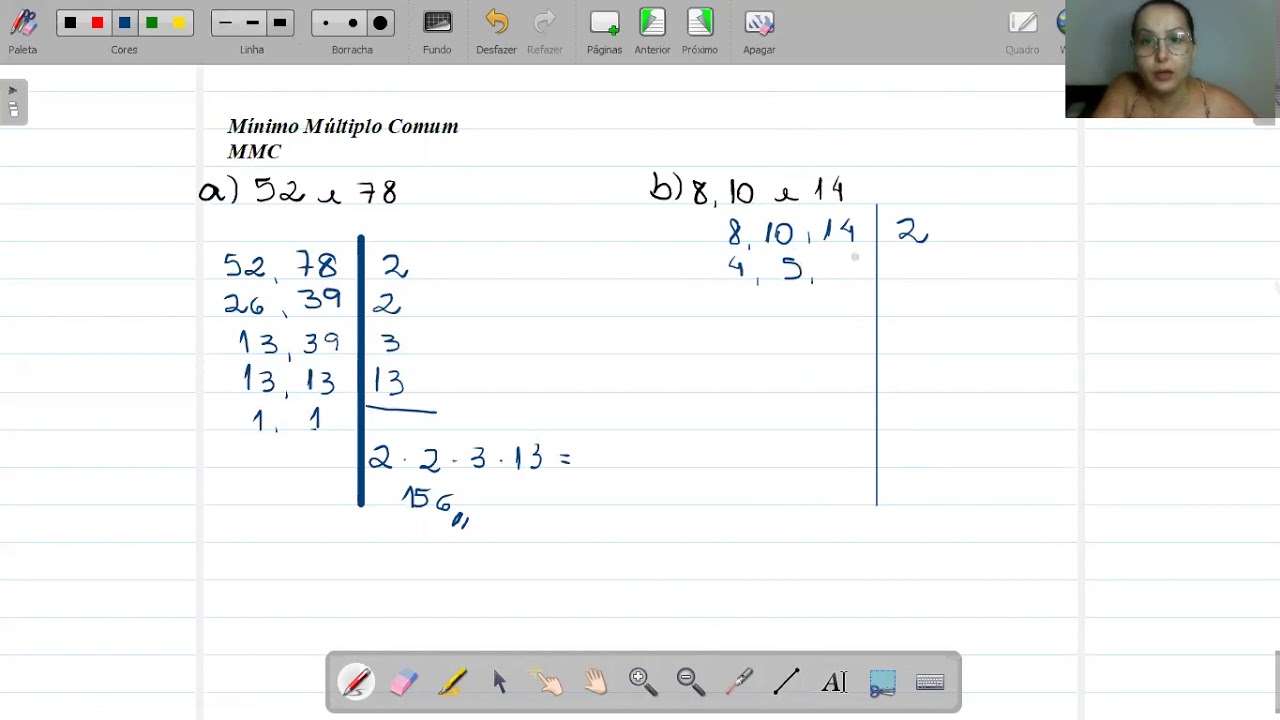 Paleta Cores Linha Borracha Fundo Desfazer Refazer Páginas Anterior Próximo Apagar Quadro
Mínimo Múltiplo Comum
MMC
a) 52 e 78
52, 78 2
26, 39 2
13, 39 3
13, 13 13
1, 1
2 · 2 · 3 · 13 =
156
b) 8, 10 e 14
8, 10, 14 2
4, 5,